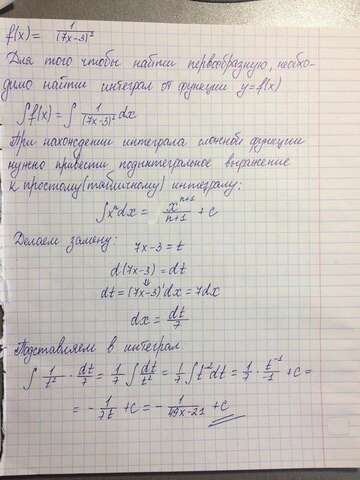 f(x) = 1/(7x-3)²
Для того чтобы найти первообразную, необхо-
димо найти интеграл от функции y=f(x)
∫f(x) = ∫ 1/(7x-3)² dx
При нахождении интеграла сложной функции
нужно привести подынтегральное выражение
к простому (табличному) интегралу:
∫xⁿdx = xⁿ⁺¹/(n+1) + c
Делаем замену:
7x-3 = t
d(7x-3) = dt
⇓
dt = (7x-3)'dx = 7dx
dx = dt/7
Подставляем в интеграл
∫ 1/t² · dt/7 = 1/7 ∫ dt/t² = 1/7 ∫ t⁻² dt = 1/7 · t⁻¹/-1 + c =
= - 1/7t + c = - 1/(49x-21) + c